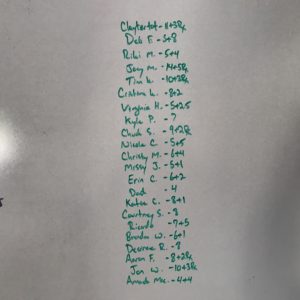 Claytertot - 11+3Rx
Deb F. - 5+8
Riki M. - 5+4
Joey M. - 14+5Rx
Tim L. - 10+3Rx
L. - 8+2
Virginia H. - 5+2.5
Kyle P. - 7
Chuck S. - 9+2Rx
Nicole C. - 5+5
Christy M. - 6+4
Missy J. - 5+1
Erin C. - 6+2
Dad - 4
Katee C. - 8+1
Courtney S. - 8
Ricardo - 7+5
Brenda W. - 6+1
Desiree R. - 8
Aaron F. - 8+2Rx
Jon W. - 10+3Rx
- 4+4